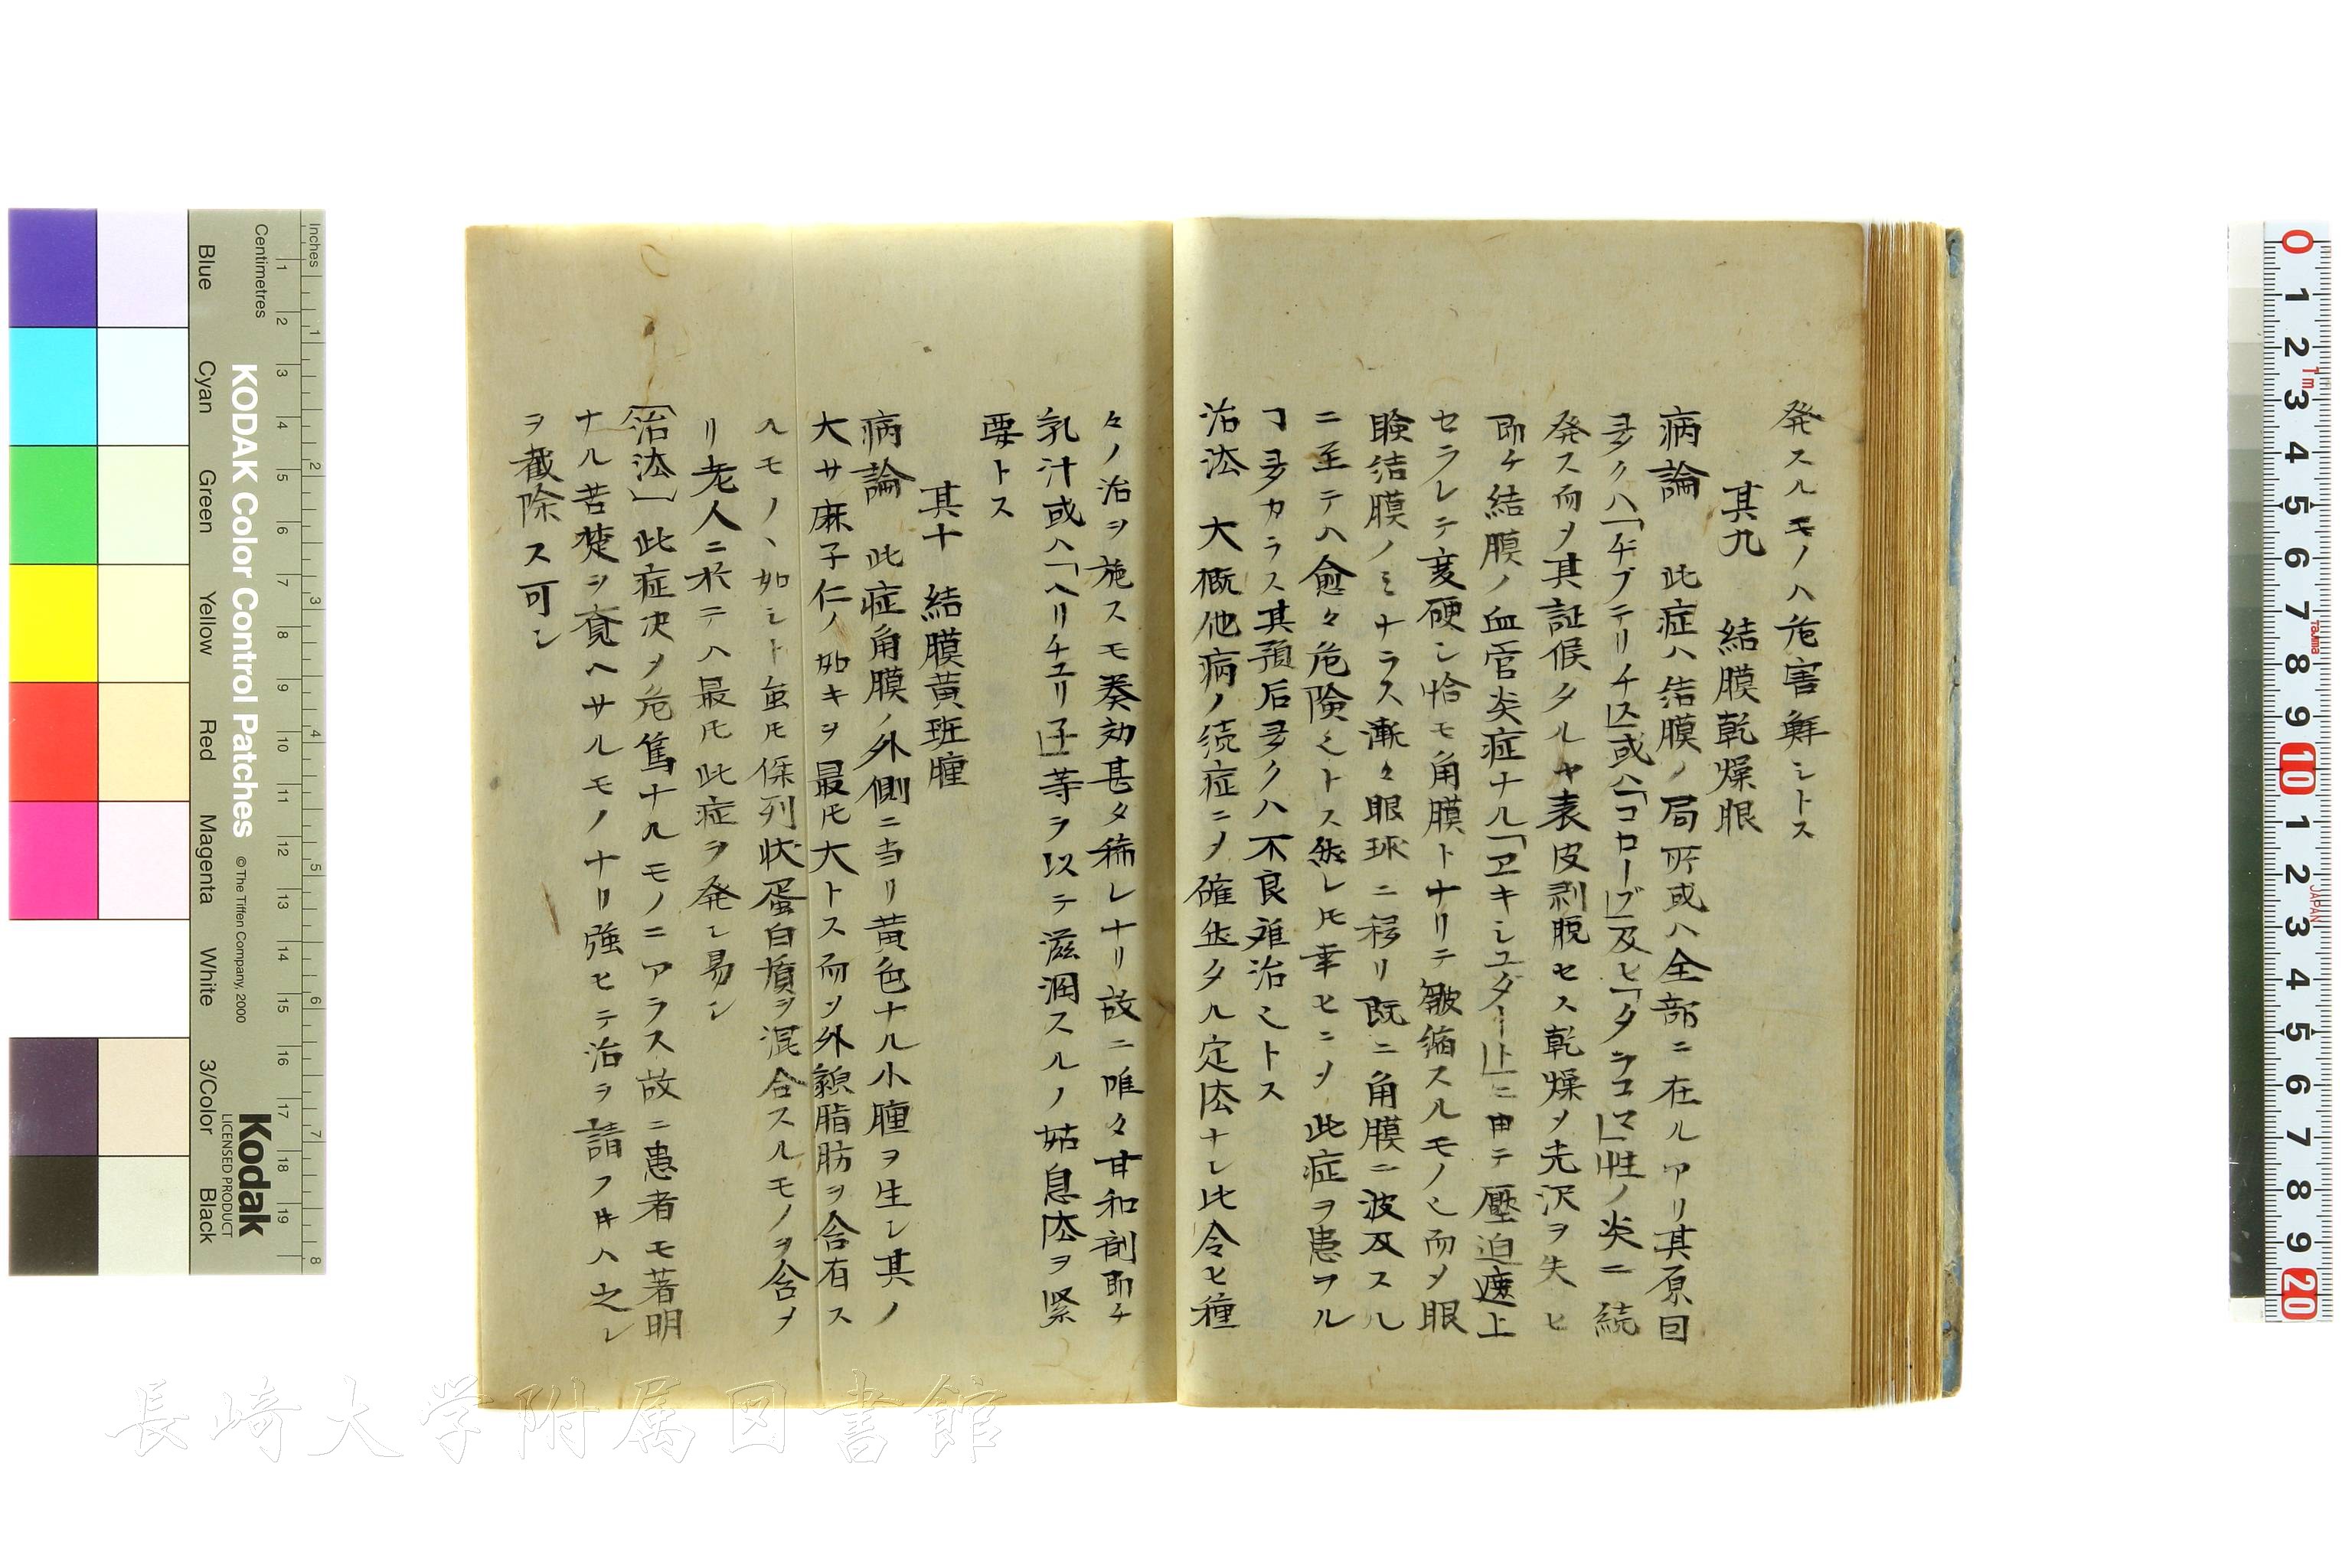 発スルモノハ危害鮮シトス
其九 結膜乾燥眼
病論 此症ハ結膜ノ局所或ハ全部ニ在ルアリ其原因
多クハ「ヂフテリチス」或ハ「コローブ」及ヒ「タラコマ」性ノ炎ニ続
発ス而〆其証候タルヤ表皮剥脱セス乾燥〆光沢ヲ失ヒ
即チ結膜ノ血管炎症ナル「ヱキシユダート」ニ由テ壓迫遮止
セラレテ変硬シ恰モ角膜トナリテ皺縮スルモノ也而〆眼
瞼結膜ノミナラス漸々眼球ニ移リ既ニ角膜ニ波及スル
ニ至テハ愈々危険也トス然レ𪜈幸ヒニ〆此症ヲ患フル
ヿ多カラス其預后多クハ不良难治也トス
治法 大概他病ノ続症ニ〆確然タル定法ナシ比令ヒ種
々ノ治ヲ施スモ奏効甚タ稀レナリ故ニ唯々甘和剤即チ
乳汁或ハ「ヘリチユリ子」等ヲ以テ滋潤スルノ姑息法ヲ緊
要トス
其十 結膜黄斑腫
病論 此症角膜ノ外側ニ当リ黄色ナル小腫ヲ生シ其ノ
大サ麻子仁ノ如キヲ最𪜈大トス而〆外貌脂肪ヲ含有ス
ルモノヽ如シト虽𪜈係列状蛋白質ヲ混合スルモノヲ含〆
リ老人ニ於テハ最𪜈此症ヲ発シ易シ
〔治法〕此症决〆危篤ナルモノニアラス故ニ患者モ著明
ナル苦楚ヲ覚ヘサルモノナリ強ヒテ治ヲ請フ𪜈ハ之レ
ヲ截除ス可シ
Inches
Centimetres
KODAK Color Control Patches
© The Tiffen Company, 2000
Kodak
LICENSED PRODUCT
Blue
Cyan
Green
Yellow
Red
Magenta
White
3/Color
Black
1 2 3 4 5 6 7 8 9 10 11 12 13 14 15 16 17 18 19
1 2 3 4 5 6 7 8
0 1 2 3 4 5 6 7 8 9 10 1 2 3 4 5 6 7 8 9 20
1m
Tajima
JAPAN
長崎大学附属図書館